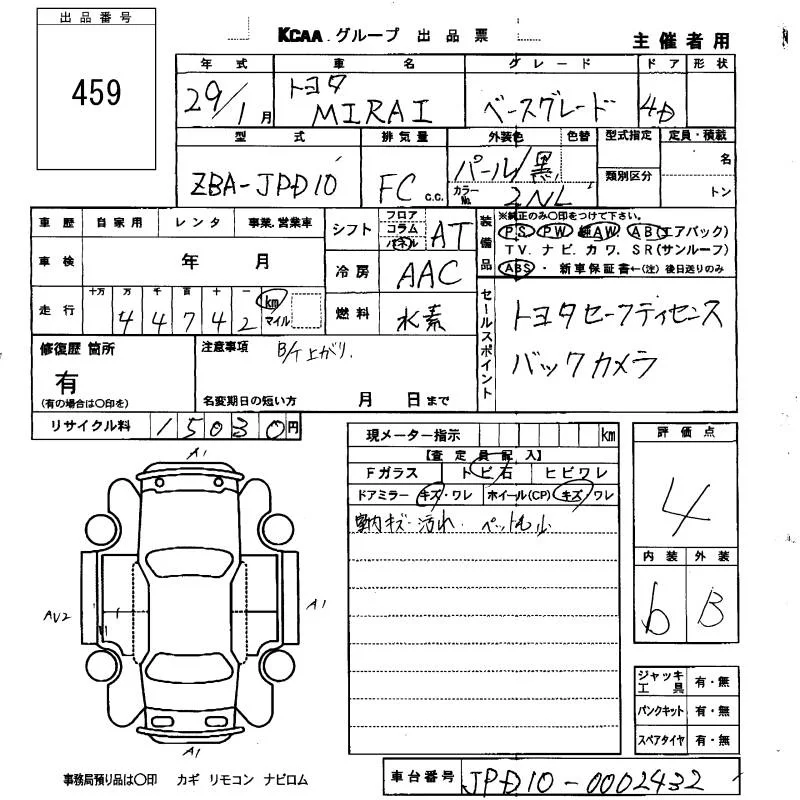 出品番号
459
KCAA グループ 出品票
主催者用
年式 車名 グレード ドア 形状
29/1月 トヨタ MIRAI ベースグレード 4D
型式 排気量 外装色 色替 型式指定 定員・積載
ZBA-JPD10 FC c.c. パール/黒 類別区分 名
カラーNo. 2NL トン
車歴 自家用 レンタ 事業.営業車
シフト フロア コラム パネル AT
装備品 ※純正のみ○印をつけて下さい。
PS PW AW AB(エアバック)
TV. ナビ. カワ. SR(サンルーフ)
ABS ・ 新車保証書←(注)後日送りのみ
車検 年 月
冷房 AAC
走行 十万 万 千 百 十 一 km マイル
44742
燃料 水素
セールスポイント
トヨタセーフティセンス
バックカメラ
修復歴 箇所
有
(有の場合は○印を)
注意事項 B/T上がり.
名変期日の短い方 月 日まで
リサイクル料 15030円
現メーター指示 km
【査定員記入】
Fガラス トビ石 ヒビワレ
ドアミラー キズ・ワレ ホイール(CP) キズ/ワレ
室内キズ・汚れ.
評価点
4
内装 外装
b B
A1
AV2
A1
A1
ジャッキ工具 有・無
パンクキット 有・無
スペアタイヤ 有・無
事務局預り品は○印 カギ リモコン ナビロム
車台番号 JPD10-0002432